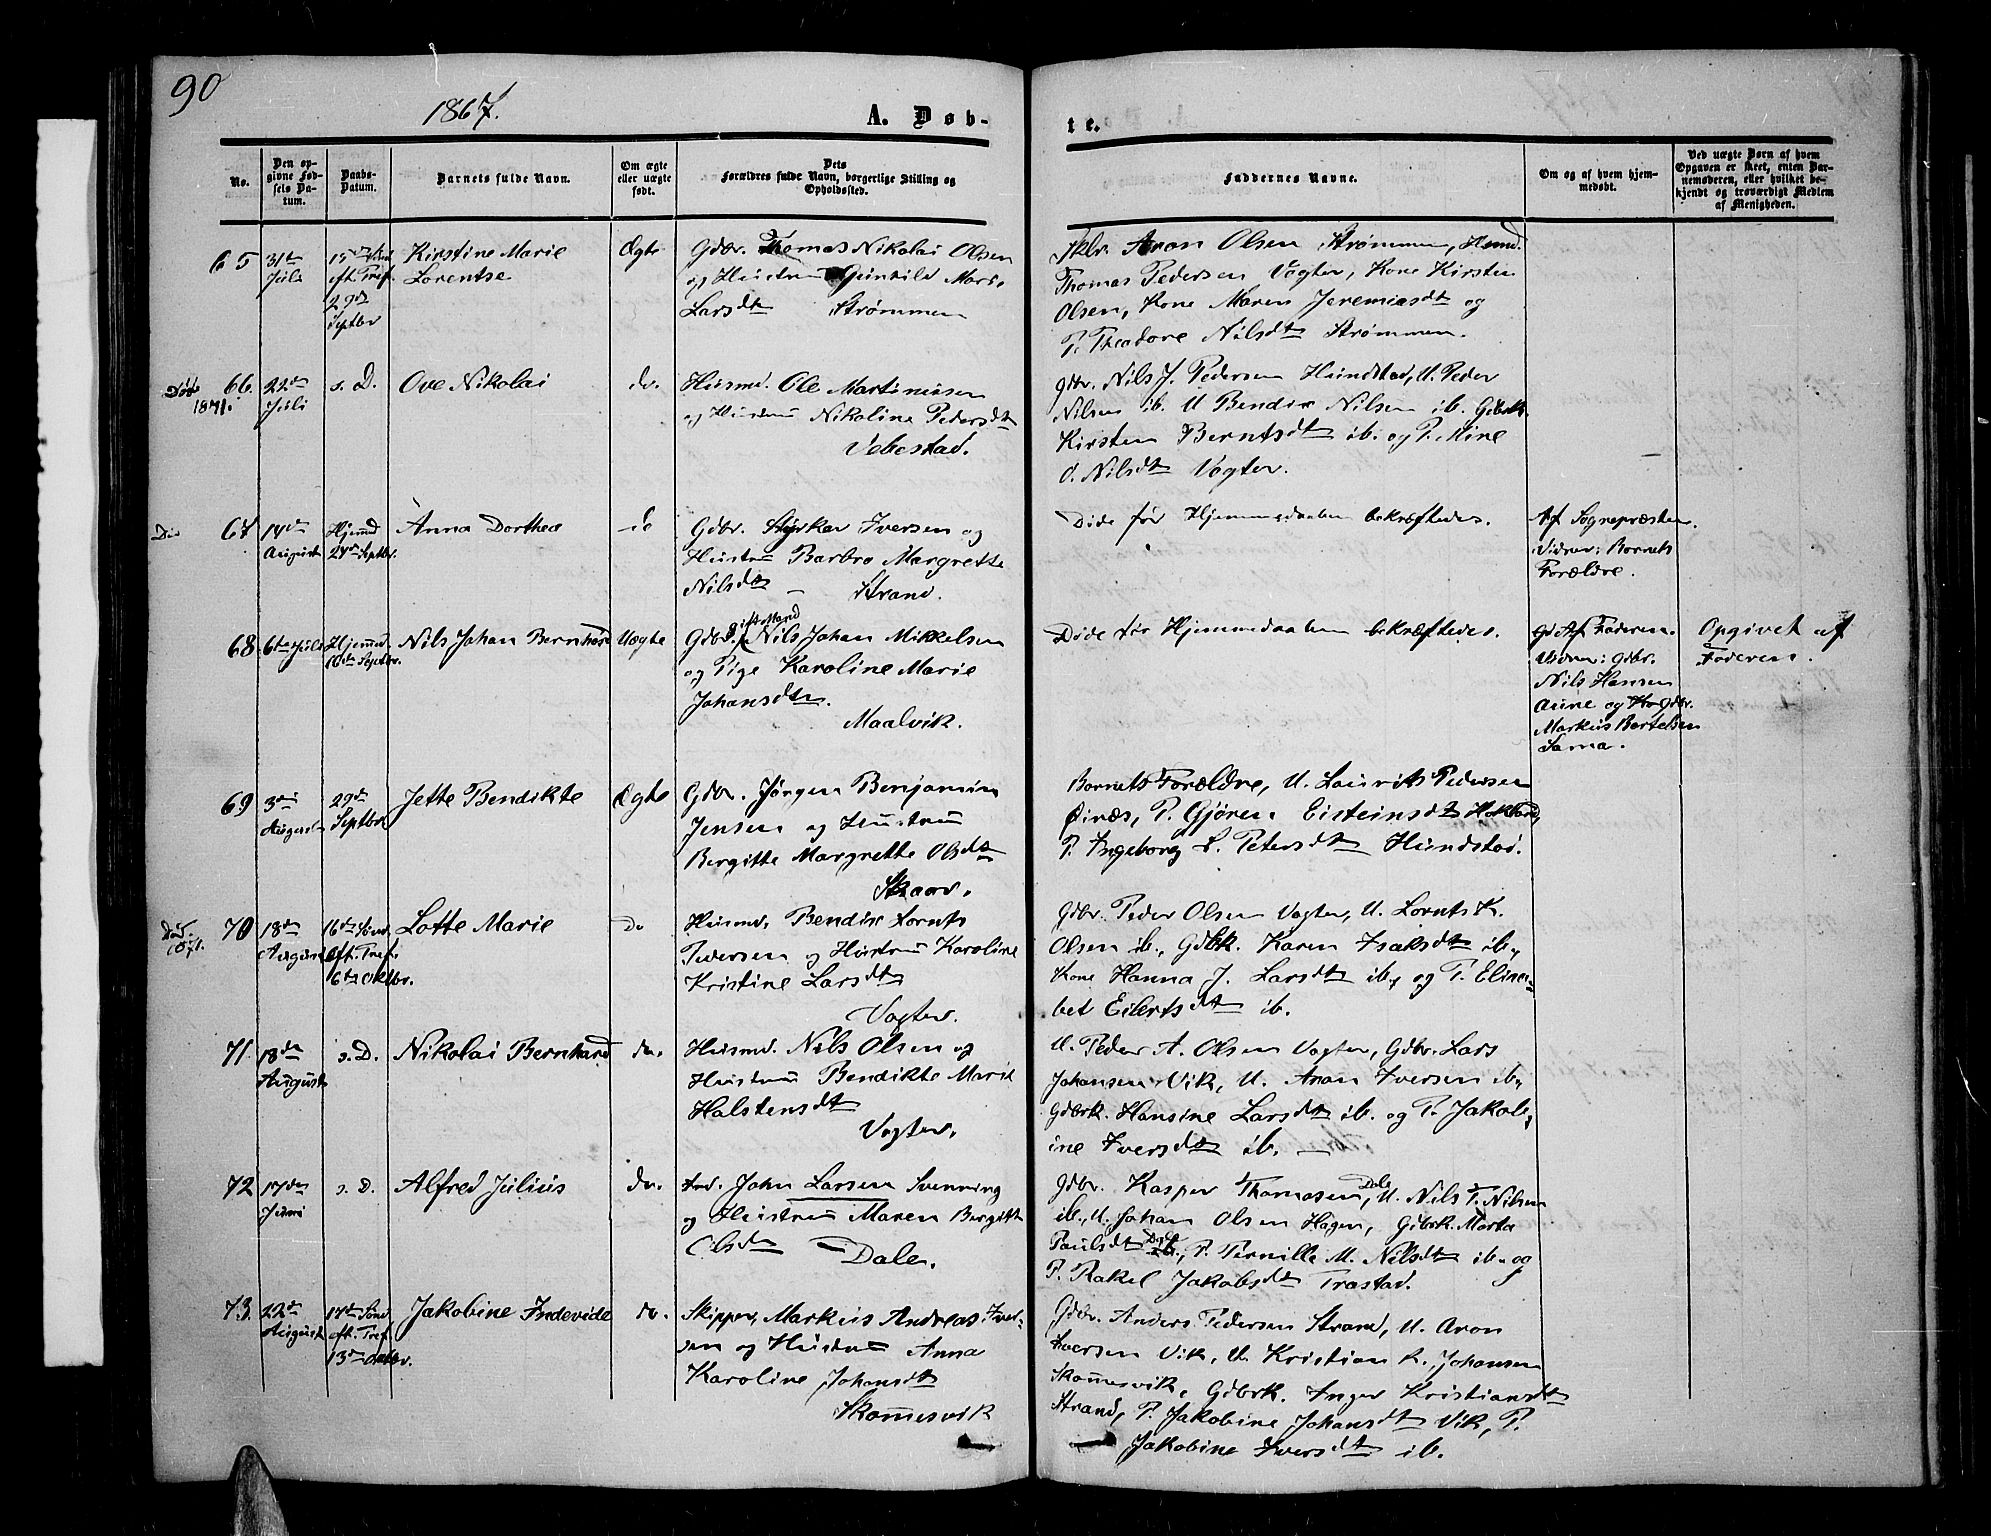 90
1867.
A. Døb-
te.
No.
Den op-
givne Fød-
sels Da-
tum.
Daabs-
Datum.
Barnets fulde Navn.
Om ægte
eller uægte
født.
Dets
Forældres fulde Navn, borgerlige Stilling og
Opholdssted.
Faddernes Navne.
Om og af hvem hjem-
medøbt.
Ved uægte Børn af hvem
Opgaven er skeet, enten Bar-
nemoderen, eller hvilket be-
kjendt og troværdigt Medlem
af Menigheden.
65
31te
Juli
15de Sønd
eft. Tref.
29de
Septbr
Kirstine Marie
Lorentse
Ægte
Gdbr. Thomas Nikolai Olsen
og Hustru Gunhild Marie
Larsdtr Strømmen
Aron Olsen Strømmen, Husmd.
Thomas Pedersen Vogter, Kone Kirsten
Olsen, Kone Maren Jeremiasdtr og
P. Theadore Nilsdtr Strømmen.
Død
1871.
66.
22de
Juli
s. D.
Ove Nikolai
do.
Husmd. Ole Martinusen
og Hustru Nikoline Pedersdtr
Vebostad.
Gdbr. Nils J. Pedersen Hundstad, U. Peder
Nilsen ib. U Bendix Nilsen ib. Gdbrk.
Kirsten Berntsdtr ib. og P. Mine
O. Nilsdtr Vogter.
67
14de
August
Hjemmd
24de Septbr.
Anna Dorthea
Gdbr. Styrkar Iversen og
Hustru Barbro Margrethe
Nilsdtr – Strand.
Døde før Hjemmedaaben bekræftedes.
Af Sognepræsten.
Vidner: Barnets
Forældre.
68
6te Juli
Hjemmd.
16de Septbr.
Nils Johan Bernhard
Uægte
gift Mand
Gdbr. Nils Johan Mikkelsen
og Pige Karoline Marie
Johansdtr.
Maalvik.
Døde før Hjemmedaaben bekræftedes.
Af Faderen.
Vidner: Gdbr.
Nils Hansen
Aune og Gdbr.
Markus Bertelsen
Sama.
Opgivet af
Faderen.
69
3die
August
29de
Septbr
Jette Bendikte
Ægte
Gdbr. Jørgen Benjamin
Jensen og Hustru
Bergitte Margrethe Olsdtr
Skaar.
Barnets Forældre, U. Laurits Pedersen
Øines, P. Gjøren Eisteinsdtr Hokland,
P. Ingeborg L. Petersdtr Hundstad.
Død.
1871.
70
18de
August
16de Sønd.
eft. Tref.
6te Oktbr.
Lotte Marie
Do
Husmd. Bendix Lornts
Pedersen og Hustru Karoline
Kristine Larsdtr
Vogter.
Gdbr. Peder Olsen Vogter, U. Lornts K.
Olsen ib., Gdbk. Karen Isaksdtr ib.,
Kone Hanna J. Larsdtr ib. og P. Elisa-
bet Eilertsdtr ib.
71.
18de
August
s. D.
Nikolai Bernhard
do.
Husmd. Nils Olsen og
Hustru Bendikte Marie
Halstensdtr
Vogter.
U. Peder A. Olsen Vogter, Gdbr. Lars
Johansen Vik, U. Aron Iversen ib.,
Gdbrk. Hansine Larsdtr ib. og P. Jakob-
ine Iversdtr ib. –
72
17de
Juni
s. D.
Alfred Julius
do.
Ind. John Larsen Svenning
og Hustru Maren Bergitte
Olsdtr – Dale.
Gdbr. Kasper Thomasen Dale, U. Nils T. Nilsen
ib., U. Johan Olsen Hagen, Gdbrk. Marta
Paulsdtr Dale, P. Pernille M. Nilsdtr ib. og
P. Rakel Jakobsdtr Trastad.
73.
22de
August
17de Sønd
eft. Tref.
13de Oktbr.
Jakobine Indevide
do.
Skipper, Markus Andreas Iver-
sen og Hustru Anna
Karoline Johansdtr
Skommesvik
Gdbr. Anders Pedersen Strand, U. Aron
Iversen Vik, U. Kristian R. Johansen
Skommesvik, Gdbrk. Inger Kristiansdtr
Strand, P. Jakobine Johansdtr Vik, P.
Jakobine Iversdtr ib.